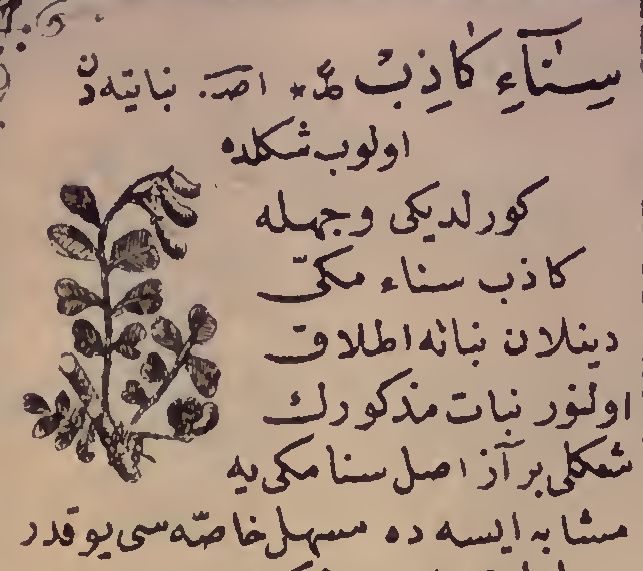 سِنَاءِ كَاذِبْ ط* اصـ. نباتیه‌دن
اولوب شكلده
كورلدیكی وجهله
كاذب سناء مكّی
دینلان نباته اطلاق
اولنور نبات مذكورك
شكلی بر آز اصل سنا مكی یه
مشابه ایسه ده مسهل خاصّه سی یوقدر